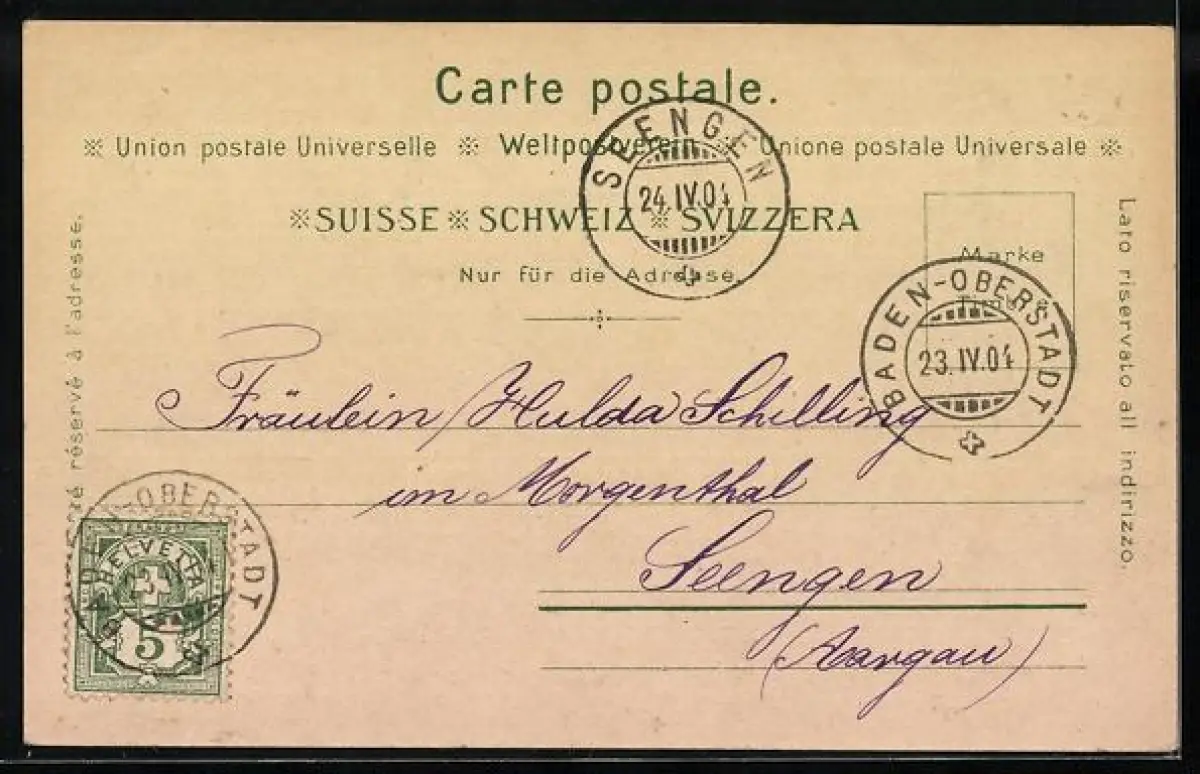 Carte postale.
※ Union postale Universelle ※ Weltpostverein ※ Unione postale Universale ※
※ SUISSE ※ SCHWEIZ ※ SVIZZERA
Nur für die Adresse.
SEENGEN
24.IV.04
Marke
Timbre
BADEN-OBERSTADT
23.IV.04
réservé à l'adresse.
Lato riservato all indirizzo.
Fräulein Hulda Schilling
im Morgenthal
Seengen
(Aargau)
BADEN-OBERSTADT
HELVETIA
5